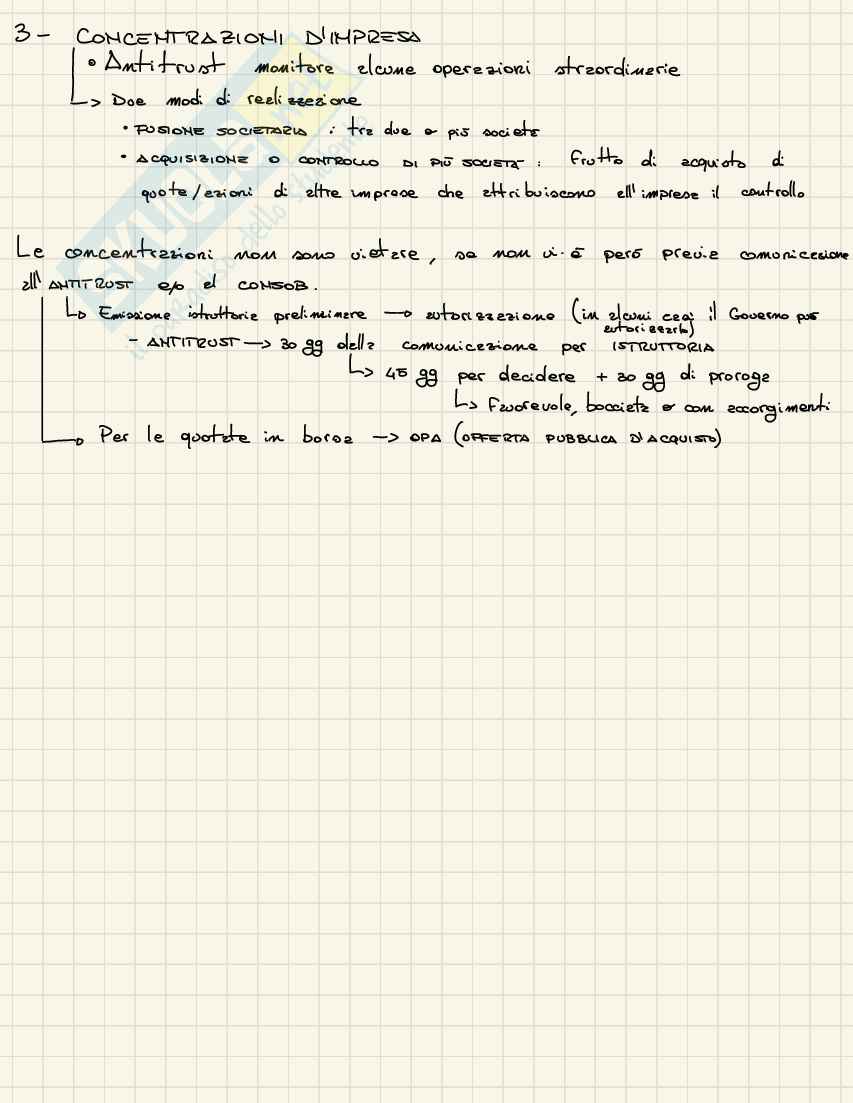 3 - CONCENTRAZIONI D'IMPRESA
• Antitrust monitora alcune operazioni straordinarie
-> Due modi di realizzazione
• FUSIONE SOCIETARIA : tra due o più società
• ACQUISIZIONE O CONTROLLO DI PIÙ SOCIETÀ : Frutto di acquisto di
quote/azioni di altre imprese che attribuiscono all'impresa il controllo
Le concentrazioni non sono vietate, se non vi è però previa comunicazione
all'ANTITRUST e/o al CONSOB.
-> Emissione istruttoria preliminare -> autorizzazione (in alcuni casi il Governo può
autorizzarlo)
- ANTITRUST -> 30 gg dalla comunicazione per ISTRUTTORIA
-> 45 gg per decidere + 30 gg di proroga
-> Favorevole, bocciata o con accorgimenti
-> Per le quotate in borsa -> OPA (OFFERTA PUBBLICA D'ACQUISTO)
SKUOLA.net
il paradiso dello studente